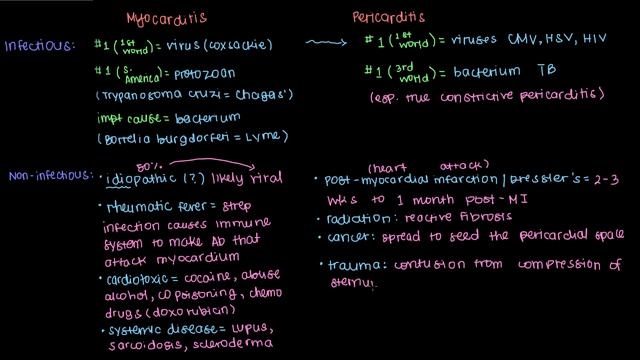 Myocarditis
Pericarditis
Infectious:
#1 (1st world) = virus (coxsackie)
#1 (S. America) = protozoan
(Trypanosoma cruzi = Chagas')
impt cause = bacterium
(Borrelia burgdorferi = Lyme)
#1 (1st world) = viruses CMV, HSV, HIV
#1 (3rd world) = bacterium TB
(esp. true constrictive pericarditis)
Non-infectious:
50%
• idiopathic (?) likely viral
• rheumatic fever = strep
infection causes immune
system to make Ab that
attack myocardium
• cardiotoxic = cocaine, abuse
alcohol, CO poisoning, chemo
drugs (doxorubian)
• systemic disease = lupus,
sarcoidosis, scleroderma
(heart attack)
• post-myocardial infarction / Dressler's = 2-3
wks to 1 month post-MI
• radiation: reactive fibrosis
• cancer: spread to seed the pericardial space
• trauma: contusion from compression of
sternu